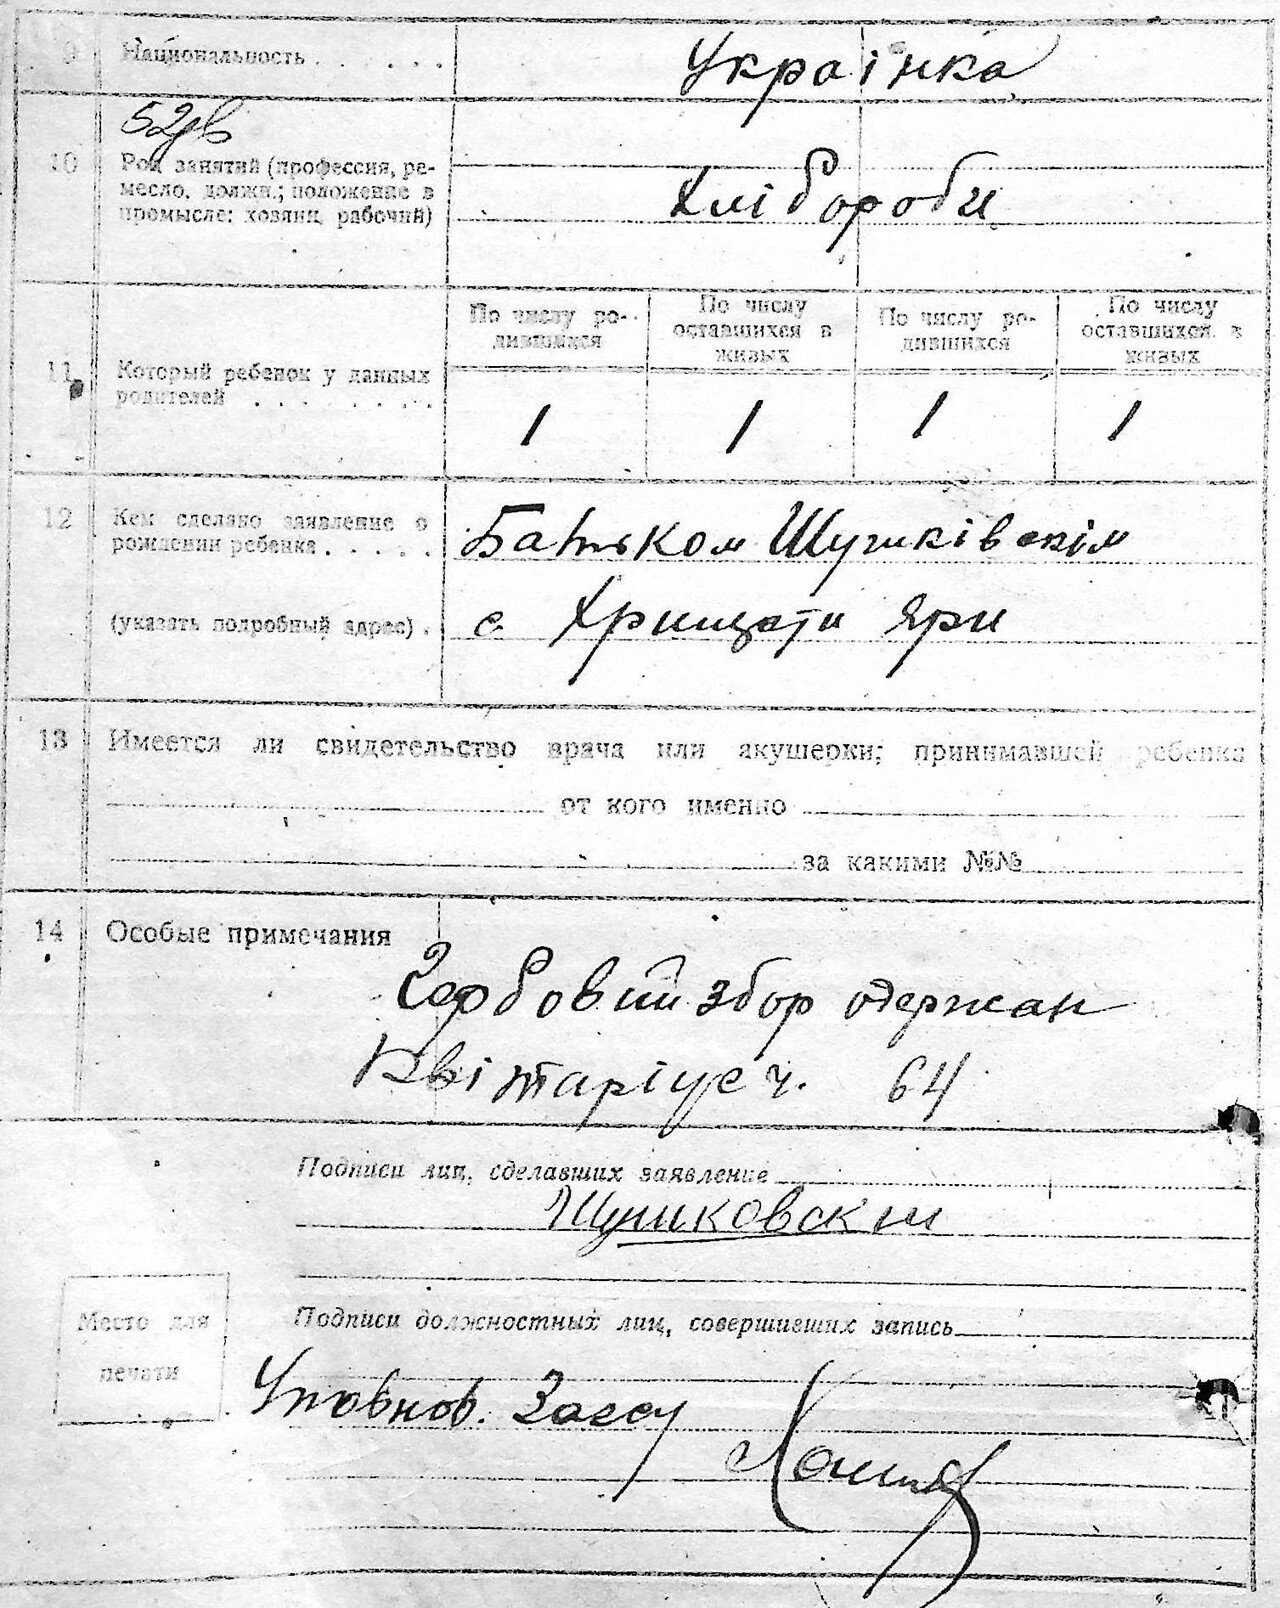 9 Национальность . . . . . . Украінка
52дв
10 Род занятий (профессия, ре-
месло, должн.; положение в
промысле: хозяин, рабочий)
Хлібороби
По числу ро-
дившихся
По числу
оставшихся в
живых
По числу ро-
дившихся
По числу
оставшихся в
живых
11 Который ребенок у данных
родителей . . . . . . . .
1 1 1 1
12 Кем сделано заявление о
рождении ребенка . . . . .
Батьком Шушківскім
(указать подробный адрес) . с Хрищати Яри
13 Имеется ли свидетельство врача или акушерки; принимавшей ребенка
от кого именно
за какими №№
14 Особые примечания
Гербовий збор одержан
Квітаріус ч. 64
Подписи лиц, сделавших заявление
Шушковский
Подписи должностных лиц, совершивших запись
Место для
печати
Уповнов. Загсу